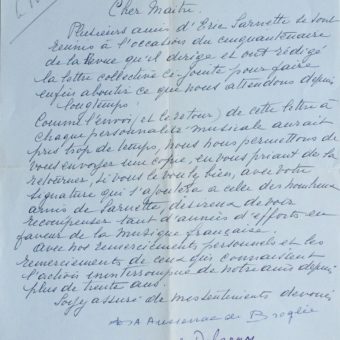 Cher Maître.
Plusieurs amis d'Eric Sarnette se sont
réunis à l'occasion du cinquantenaire
de la Revue qu'il dirige et ont rédigé
la lettre collective ci-jointe pour faire
enfin aboutir ce que nous attendons depuis
longtemps.
Comme l'envoi (et le retour) de cette lettre à
chaque personnalité musicale aurait
pris trop de temps, nous nous permettons de
vous envoyer une copie, en vous priant de la
retourner, si vous le voulez bien, avec votre
signature qui s'ajoutera à celles des nombreux
amis de Sarnette, désireux de voir
récompenser tant d'années d'efforts en
faveur de la musique française.
Avec nos remerciements personnels et les
remerciements de ceux qui connaissent
l'action ininterrompue de notre ami depuis
plus de trente ans.
Soyez assuré de mes sentiments dévoués
de Broglie